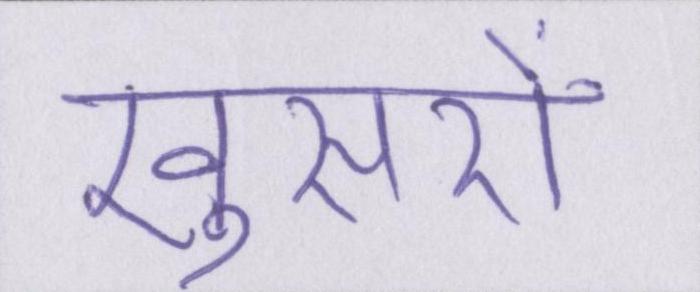 खुसरों